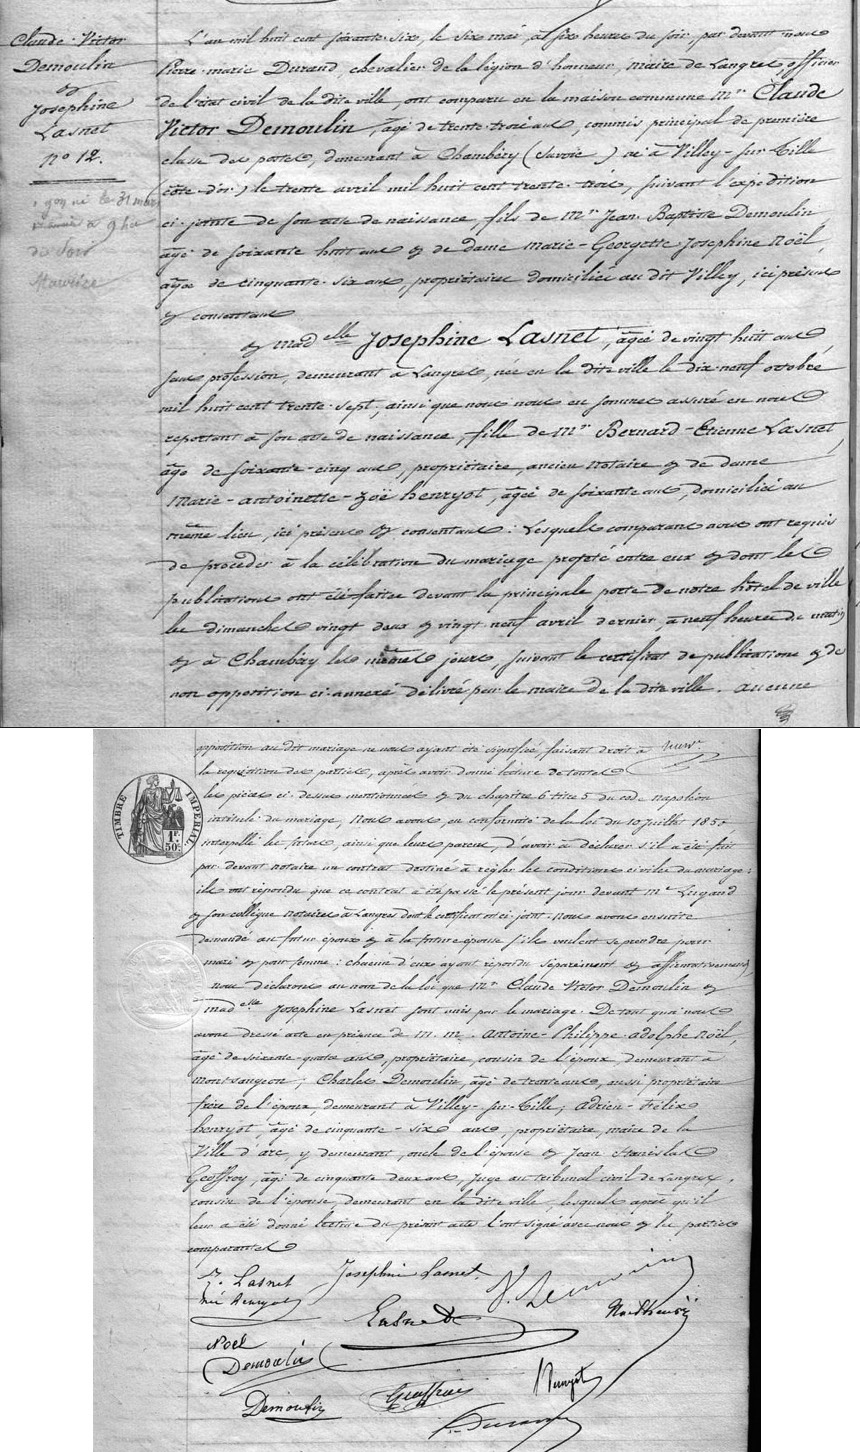 Claude Victor
Demoulin
&
Josephine
Lasnet
n° 12.
L'an mil huit cent soixante-six, le six mai, à six heures du soir, par devant nous
Pierre marie Durand, chevalier de la légion d'honneur, maire de Langres, officier
de l'état civil de la dite ville, ont comparu en la maison commune Mr Claude
Victor Demoulin, agé de trente-trois ans, commis principal de première
classe des postes, demeurant à Chambéry (Savoie) né à Villey-sur-Tille
(côte-d'or) le trente avril mil huit cent trente-trois, suivant l'expédition
ci-jointe de son acte de naissance, fils de Mr Jean Baptiste Demoulin,
âgé de soixante huit ans & de dame Marie-Georgette Josephine Noël,
âgée de cinquante-six ans, propriétaires domiciliés au dit Villey, ici présents
& consentants
& mad elle Josephine Lasnet, âgée de vingt huit ans
sans profession, demeurant à Langres, née en la dite ville le dix-neuf octobre
mil huit cent trente-sept, ainsi que nous nous en sommes assuré en nous
reportant à son acte de naissance, fille de Mr Bernard-Etienne Lasnet,
âgé de soixante-cinq ans, propriétaire, ancien notaire & de dame
Marie-antoinette-Zoë henryot, âgée de soixante ans, domiciliés au
même lieu, ici présents & consentants : Lesquels comparants nous ont requis
de procéder à la célébration du mariage projeté entre eux & dont les
publications ont été faites devant la principale porte de notre hôtel de ville
les dimanches vingt deux & vingt neuf avril dernier à neuf heures du matin
& à Chambéry les mêmes jours, suivant le certificat de publications & de
non opposition ci-annexé délivré par le maire de la dite ville. aucune
opposition au dit mariage ne nous ayant été signifiée, faisant droit à
la réquisition des parties, après avoir donné lecture de toutes
les pièces ci-dessus mentionnées & du chapitre 6 titre 5 du code Napoléon
intitulé du mariage, Nous avons, en conformité de la loi du 10 Juillet 1850,
interpellé les futurs, ainsi que leurs parents, d'avoir à déclarer s'il a été fait
par devant notaire un contrat destiné à régler les conditions civiles du mariage;
ils ont répondu que ce contrat a été passé le présent jour devant Me
& son collègue notaires à Langres dont le certificat est ci-joint. Nous avons ensuite
demandé au futur époux & à la future épouse s'ils veulent se prendre pour
mari & pour femme : chacun d'eux ayant répondu séparément & affirmativement,
nous déclarons au nom de la loi que Mr Claude Victor Demoulin &
mad elle Josephine Lasnet sont unis par le mariage. De tout quoi nous
avons dressé acte en présence de M.M. Antoine-Philippe-adolphe Noël,
âgé de soixante-quatre ans, propriétaire, cousin de l'époux, demeurant à
montsaugeon; Charles Demoulin, âgé de trente ans, aussi propriétaire
frère de l'époux, demeurant à Villey-sur-Tille; Adrien-Félix
henryot, âgé de cinquante-six ans, propriétaire, maire de la
Ville d'arc, y demeurant, oncle de l'épouse & Jean Stanislas
Geoffroy, âgé de cinquante deux ans, juge au tribunal civil de Langres,
cousin de l'épouse, demeurant en la dite ville, lesquels après qu'il
leur a été donné lecture du présent acte l'ont signé avec nous & les parties
comparantes
TIMBRE IMPERIAL
1F.
50c.
Z. Lasnet
née henryot
Josephine Lasnet.
V. Demoulin
Lasnet
Noël
Demoulin
Demoulin
Geoffroy
henryot
Durand